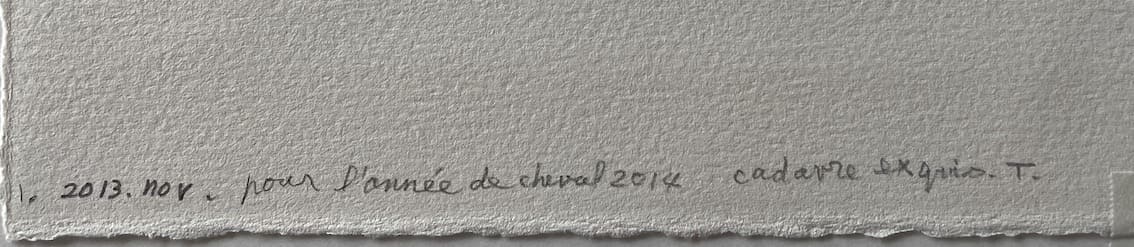 1. 2013. nov. pour l'année de cheval 2014 cadavre exquis. T.